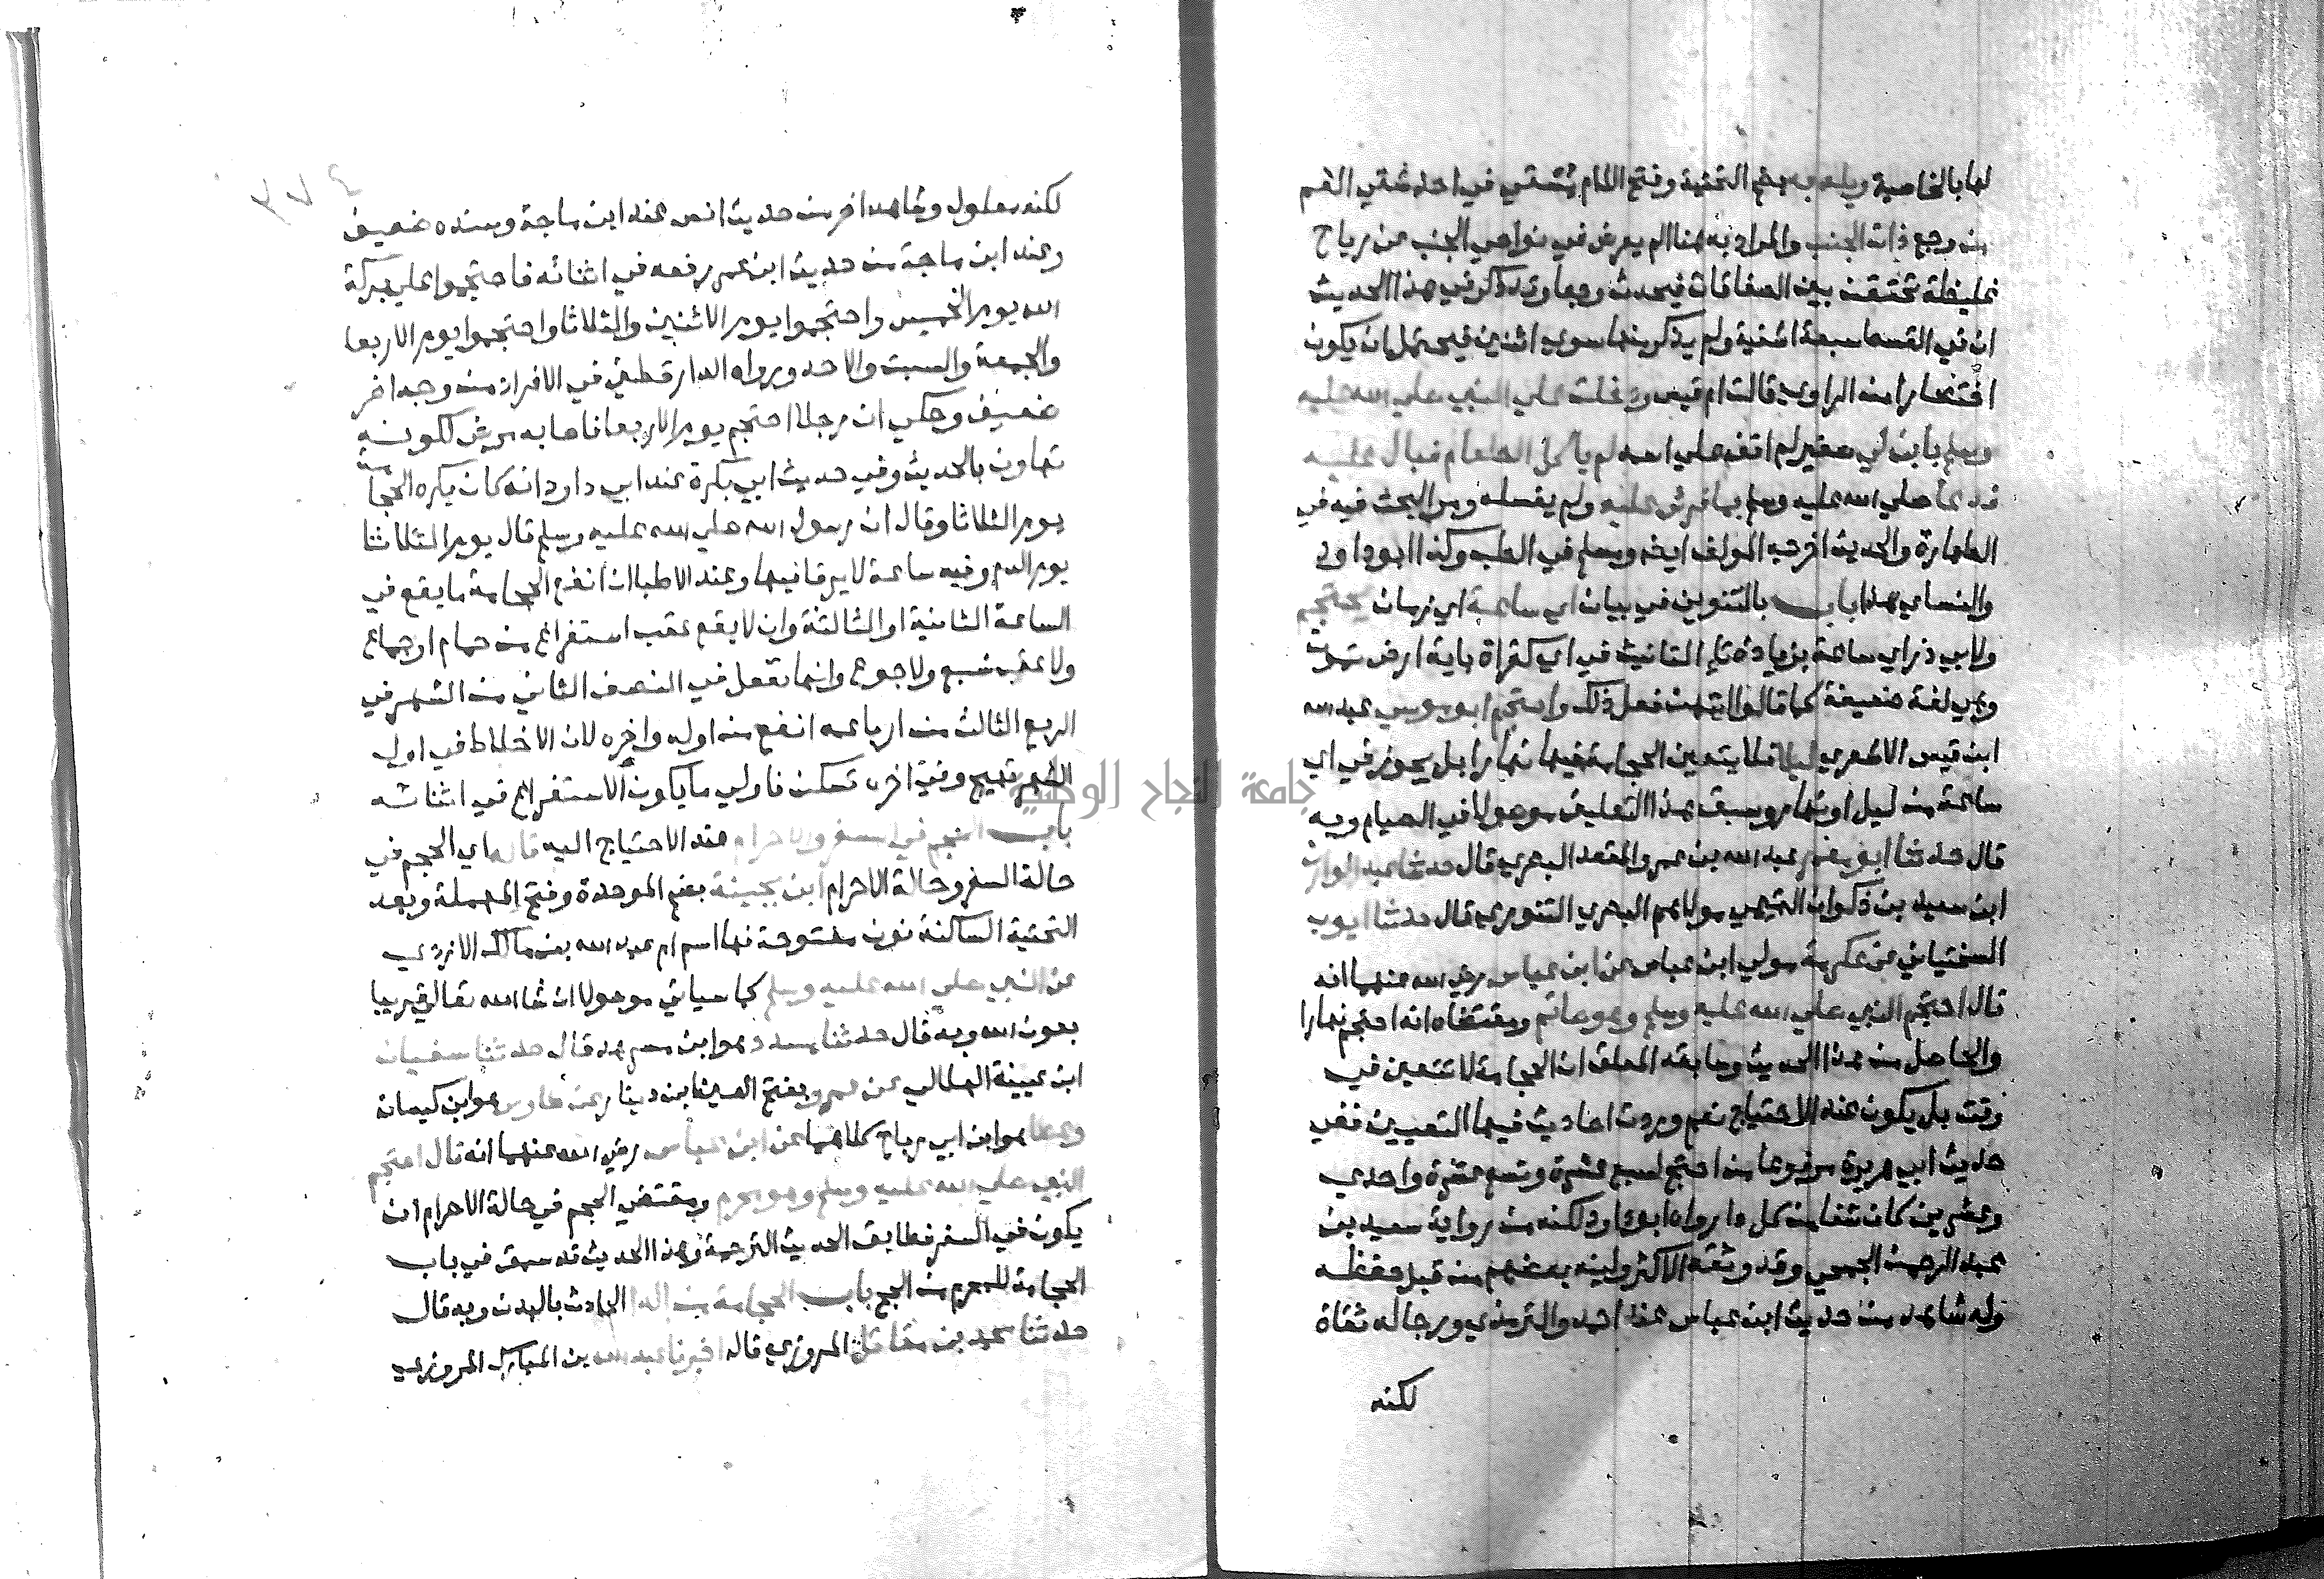 لها بالخاصية ويلد به بضم التحتية وفتح اللام يسقي في احد شقي الفم
من وجع ذات الجنب والمراد به هنا الم يعرض في نواحي الجنب عن رياح
غليظة تحتقن بين الصفاقات فيحدث وجعا وقد ذكر في هذا الحديث
ان في القسط سبعة اشفية ولم يذكر منها سوي اثنين فيحتمل ان يكون
اختصارا من الراوي قالت ام قيس ودخلت علي النبي صلي الله عليه
وسلم بابن لي صغير لم اقف علي اسمه لم ياكل الطعام فبال عليه
فدعا صلي الله عليه وسلم بما فرش عليه ولم يغسله ومر البحث فيه في
الطهارة والحديث اخرجه المولف ايضا ومسلم في الطب وكذا ابو داود
والنساي هذا باب بالتنوين في بيان اي ساعة اي زمان يحتجم
ولابي ذر اي ساعة بزيادة تاء التانيث في اي كقراة باية ارض تموت
وهي لغة ضعيفة كما قالوا كلتهن فعل ذلك واحتجم ابو موسي عبد الله
ابن قيس الاشعري ليلا فلا يتعين الحجامة فيها نهارا بل يجوز في اي
ساعة من ليل او نهار وسبق هذا التعليق موصولا في الصيام وبه
قال حدثنا ابو معمر عبد الله بن عمرو المقعد البصري قال حدثنا عبد الوارث
ابن سعيد بن ذكوان التميمي مولاهم البصري التنوري قال حدثنا ايوب
السختياني عن عكرمة مولي ابن عباس عن ابن عباس رضي الله عنهما انه
قال احتجم النبي صلي الله عليه وسلم وهو صائم ومقتضاه انه احتجم نهارا
والحاصل من هذا الحديث وسابقه المعلق ان الحجامة لا تتعين في
وقت بل يكون عند الاحتياج نعم وردت احاديث فيها التعيين ففي
حديث ابي هريرة مرفوعا من احتجم لسبع عشرة وتسع عشرة واحدي
وعشرين كان شفا من كل دا رواه ابو داود لكنه من رواية سعيد بن
عبد الرحمن الجمحي وقد وثقه الاكثر ولينه بعضهم من قبل حفظه
وله شاهد من حديث ابن عباس عند احمد والترمذي ورجاله ثقاة
لكنه
لكنه معلول وشاهد اخر من حديث انس عند ابن ماجة وسنده ضعيف
وعند ابن ماجة من حديث ابن عمر رفعه في اثنائه فاحتجموا علي بركة
الله يوم الخميس واحتجموا يوم الاثنين والثلاثا واحتجموا يوم الاربعا
والجمعة والسبت والاحد ورواه الدارقطني في الافراد من وجه اخر
ضعيف وحكي ان رجلا احتجم يوم الاربعا فاصابه مرض لكونه
تهاون بالحديث وفي حديث ابي بكرة عند ابي داود انه كان يكره الحجامة
يوم الثلاثا وقال ان رسول الله صلي الله عليه وسلم قال يوم الثلاثا
يوم الدم وفيه ساعة لا يرقا فيها وعند الاطبا ان انفع الحجامة ما يقع في
الساعة الثانية او الثالثة وان لا يقع عقب استفراغ من حمام او جماع
ولا عقب شبع ولا جوع وانها تفعل في النصف الثاني من الشهر في
الربع الثالث من ارباعه انفع من اوله واخره لان الاخلاط في اول
الشهر تهيج وفي اخره تسكن فاولي ما يكون الاستفراغ في اثنائه
باب الحجم في السفر والاحرام عند الاحتياج اليه قاله اي الحجم في
حالة السفر وحالة الاحرام ابن بحينة بضم الموحدة وفتح المهملة وبعد
التحتية الساكنة نون مفتوحة فها اسم ام عبد الله بن مالك الازدي
عن النبي صلي الله عليه وسلم كما سياتي موصولا ان شا الله تعالي قريبا
بعون الله وبه قال حدثنا مسدد هو ابن مسرهد قال حدثنا سفيان
ابن عيينة الهلالي عن عمرو بفتح العين ابن دينار عن طاوس هو ابن كيسان
وعطا هو ابن ابي رباح كلاهما عن ابن عباس رضي الله عنهما انه قال احتجم
النبي صلي الله عليه وسلم وهو محرم ومقتضي الحجم في حالة الاحرام ان
يكون في السفر فطابق الحديث الترجمة وهذا الحديث قد سبق في باب
الحجامة للمحرم من الحج باب الحجامة من الدا الحادث بالبدن وبه قال
حدثنا محمد بن مقاتل المروزي قال اخبرنا عبد الله بن المبارك المروزي
جامعة النجاح الوطنية